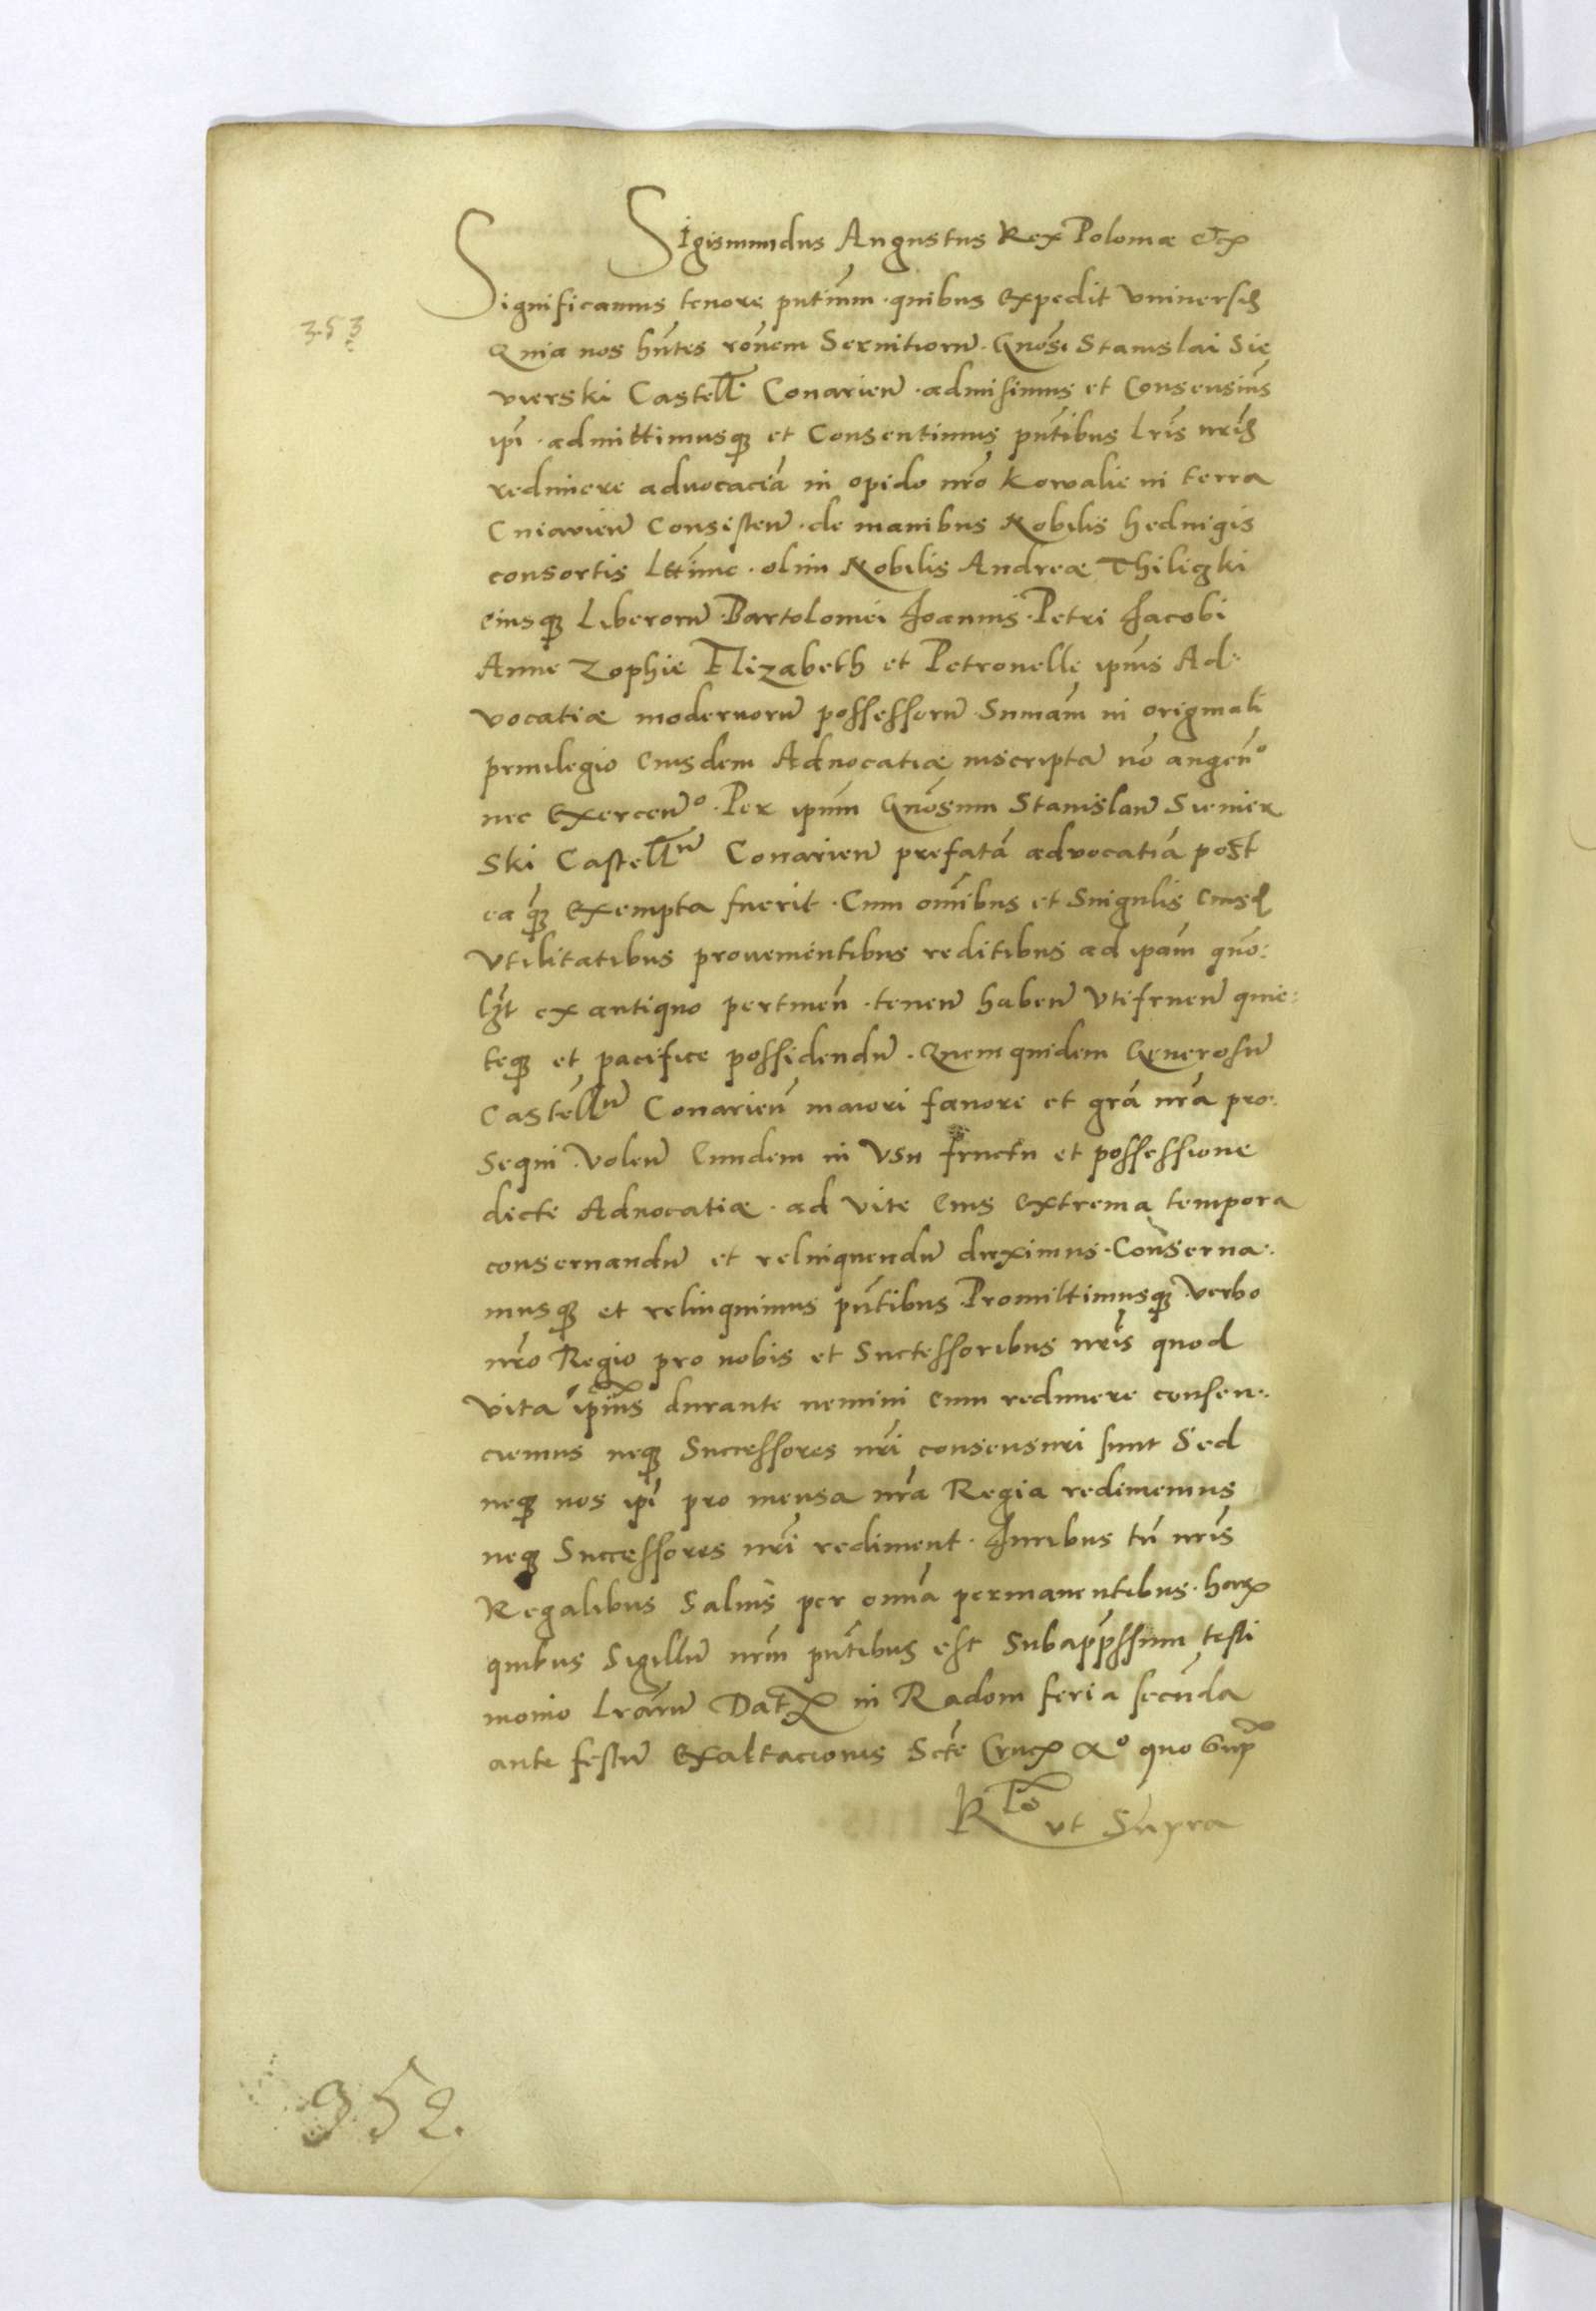 Sigismundus Augustus Rex Poloniae etc
353
Significamus tenore pntium quibus expedit vniversis
Quia nos hntes ronem Seruitioru Gnosi Stanislai Sie
vierski Castell. Conarien admisimus et Consensims
ipi admittimusq; et Consentimus pntibus Lris nris
redimere aduocaciã in opido nrõ Kowalie in terra
Cuiavien Consisten de manibus Nobilis heduigis
consortis Lttime olim Nobilis Andreæ Thiliczki
eiusq; Liberoru Bartolomei Joannis Petri Jacobi
Anne Zophie Elizabeth et Petronelle ipius Ad:
vocatiæ modernoru possessoru Sumam in originali
priuilegio eiusdem Aduocatiæ inscripta nõ augen°
nec Exercen° Per ipum Gnosum Stanislau Sieuier
ski Castellnu Conarien prefatã advocatiã post
ea q; exempta fuerit Cum omibus et Singulis eiusd
Vtilitatibus prouenientibus reditibus ad ipam quo:
lzt ex antiquo pertinen tenen haben Vtifruen quie:
teq; et pacifice possidendu Quem quidem Generosu
Castellnu Conarien maiori fauore et grã nrã pro:
sequi volen Eundem in Vsu fructu et possessione
dicte Aduocatiæ ad vite eius extrema tempora
conseruandu et relinquendu duximus Conserua:
musq; et relinquimus pntibus Promittimusq; verbo
nrõ Regio pro nobis et Successoribus nris quod
vita ipius durante nemini eum redimere consen:
ciemus neq; Successores nri consensuri sunt Sed
neq; nos ipi pro mensa nrã Regia redimemus
neq; Successores nri rediment Juribus tn nris
Regalibus Saluis per omia permanentibus harx
quibus Sigillu nrm pntibus est Subapprssum testi
monio Lrarum Dat in Radom feria secunda
ante festu Exaltacionis Scte Cruc A° quo Sup
Rlo vt Supra
352.